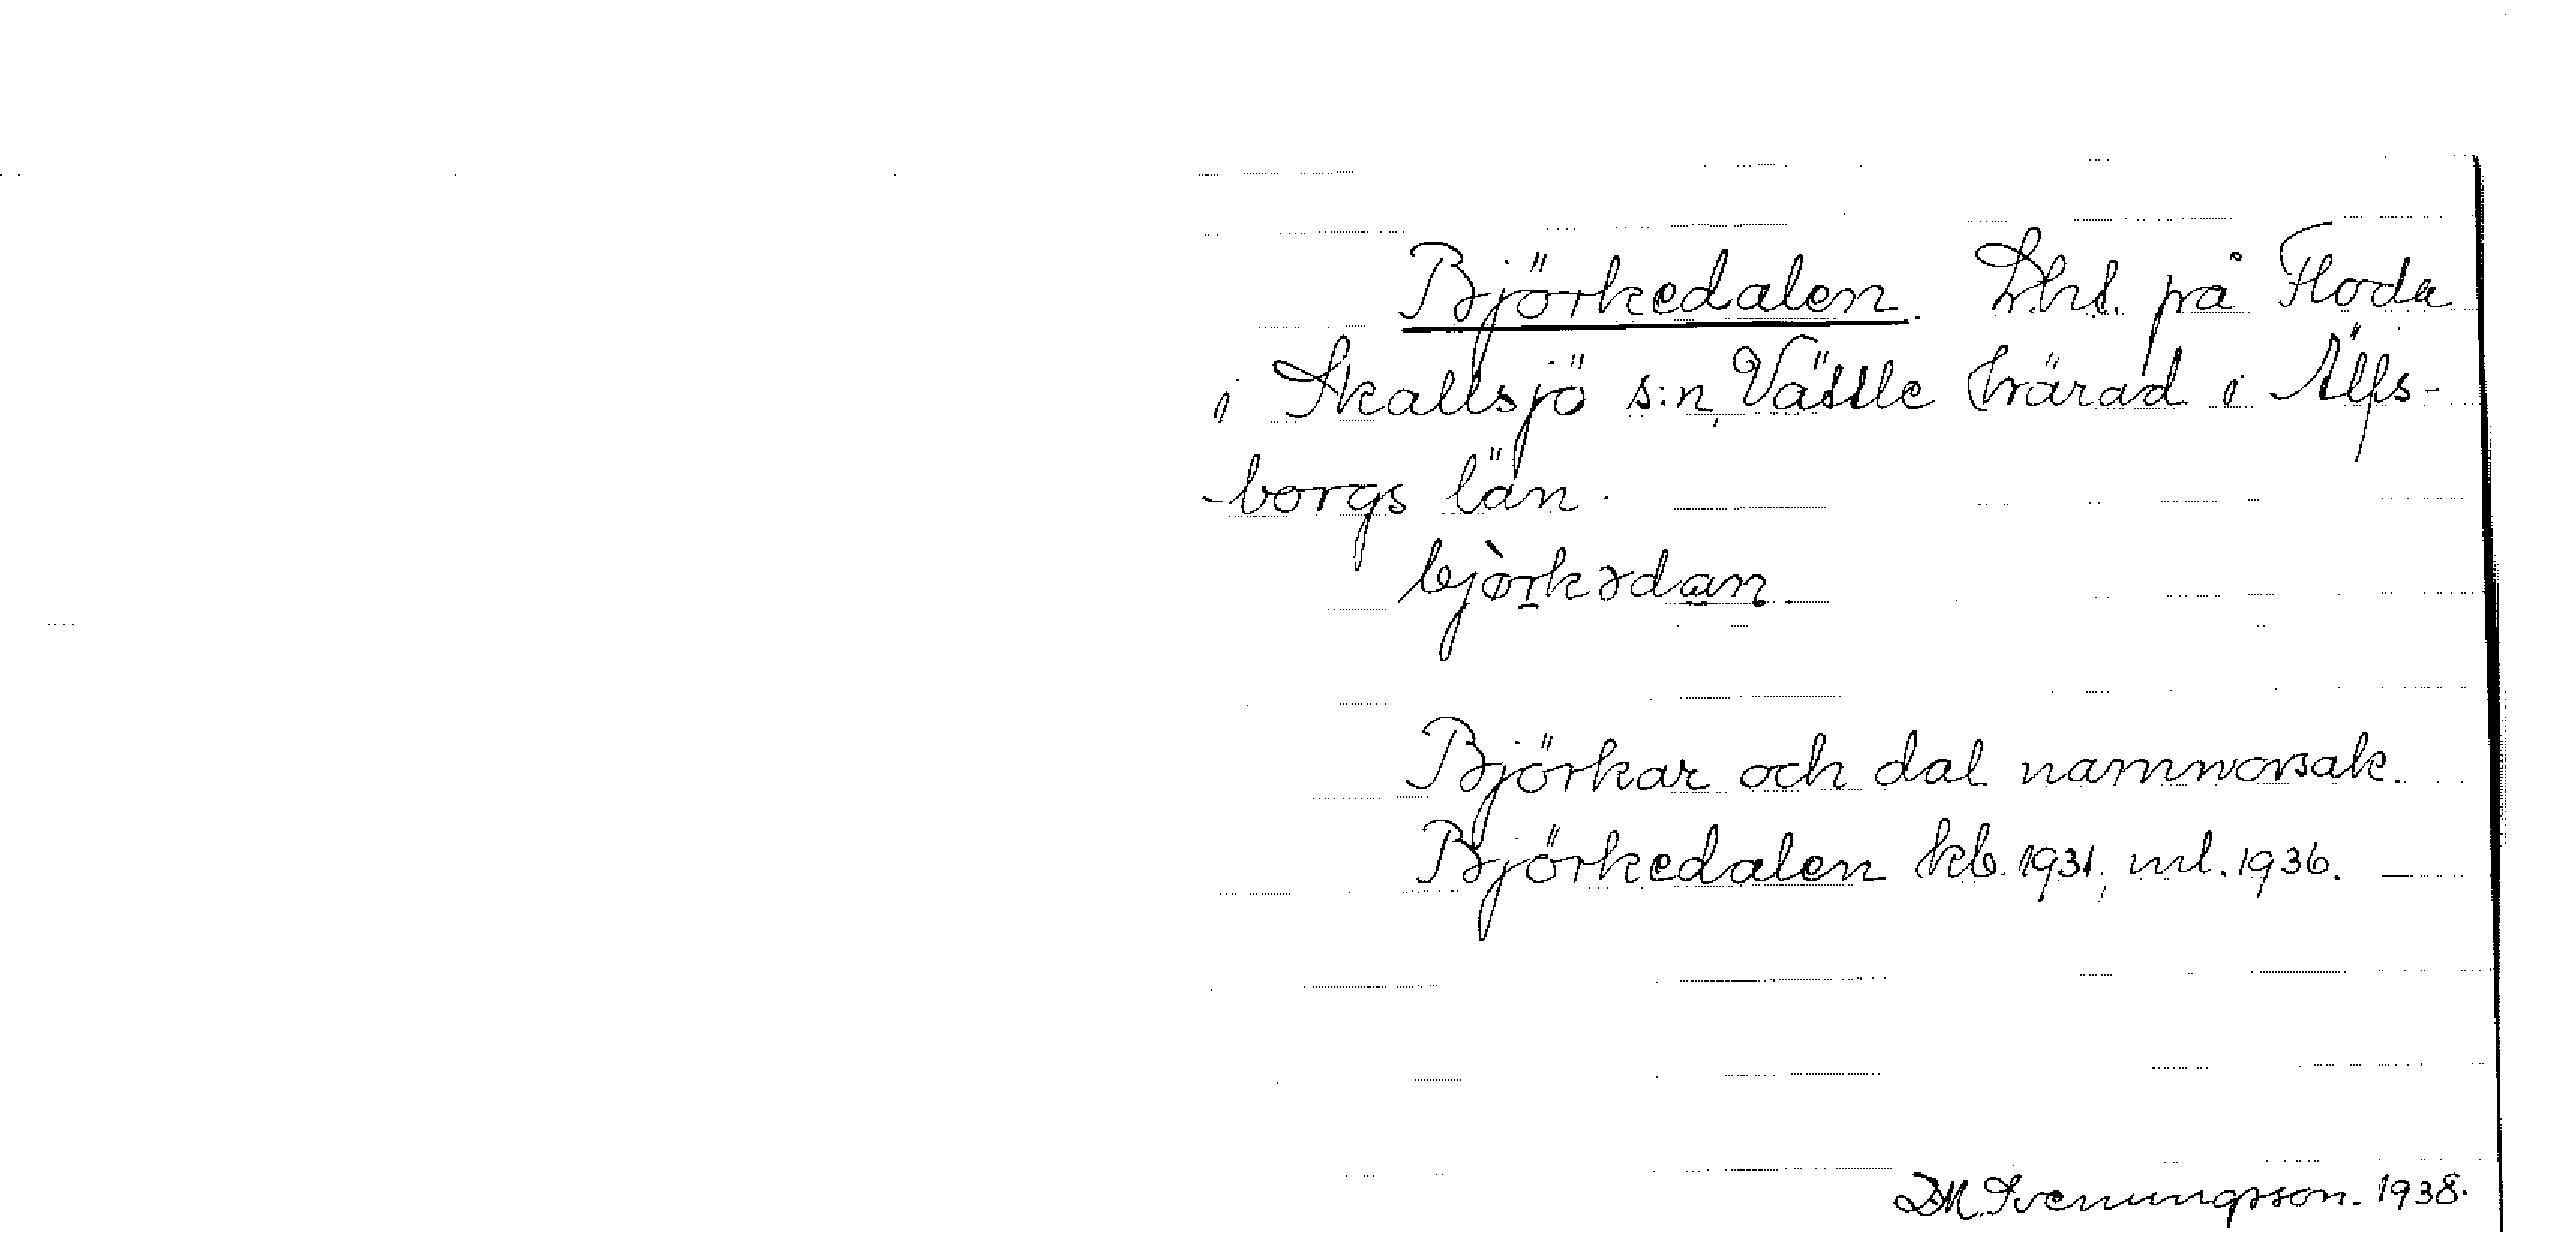 Björkedalen. Lht. på Floda
i Skallsjö s:n, Vättle härad i Älfs-
-borgs län.
bjòrkədan
Björkar och dal namnorsak.
Björkedalen kb. 1931, ml. 1936. —
DM. Svenungsson. 1938.